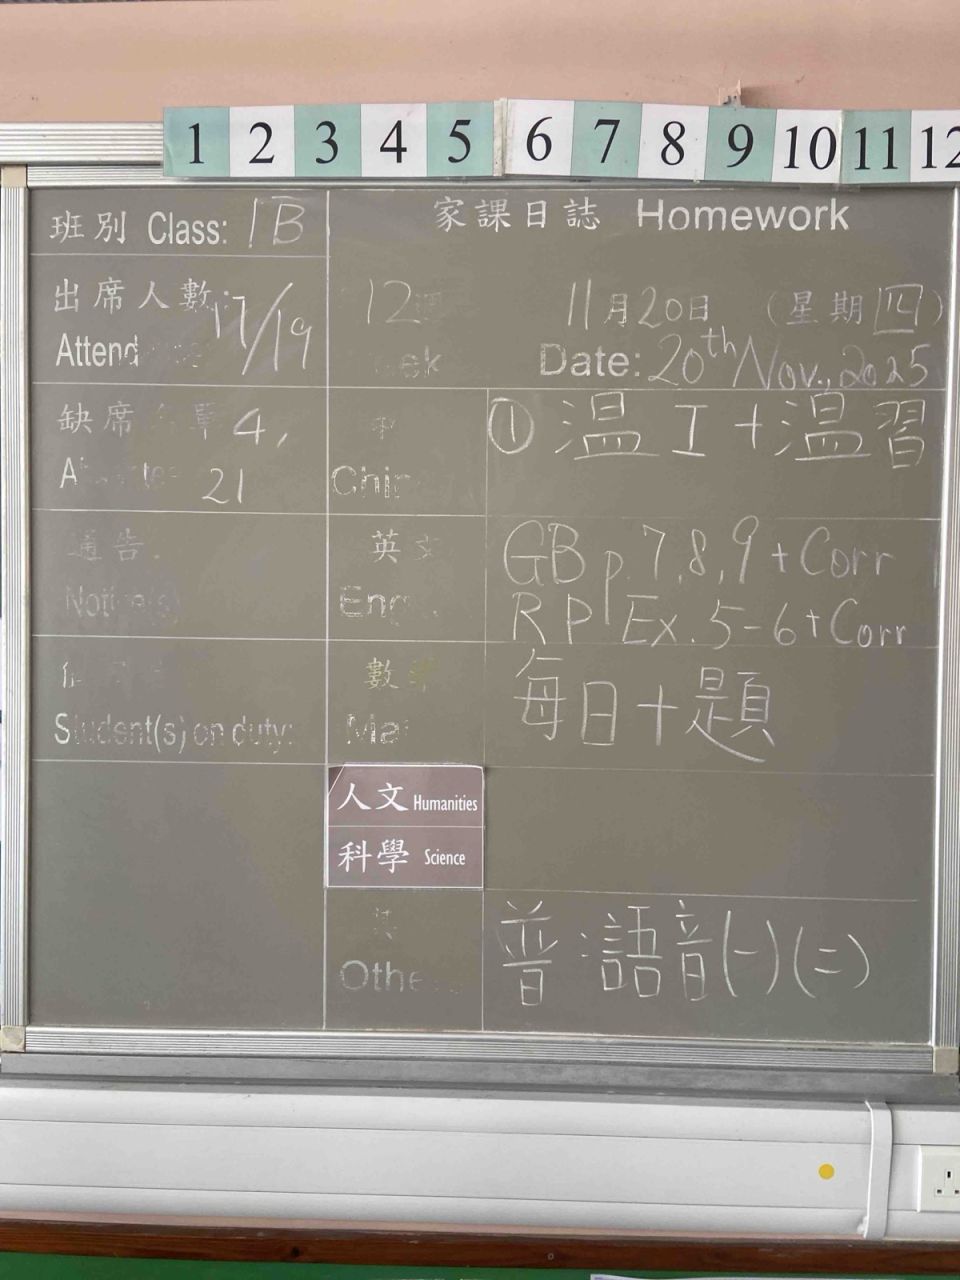 1 2 3 4 5 6 7 8 9 10 11 12
班別 Class: 1B
家課日誌 Homework
出席人數: 17/19
Attend
12週
eek
11月20日 (星期四)
Date: 20th Nov., 2025
缺席名單 4,
21
中
Chin
① 温工+温習
通告:
Notice(s)
英文
Eng
GB p.7,8,9 + Corr
RP Ex.5-6 + Corr
Student(s) on duty:
數學
Mat
每日十題
人文 Humanities
科學 Science
其
Othe
普:語音(一)(二)